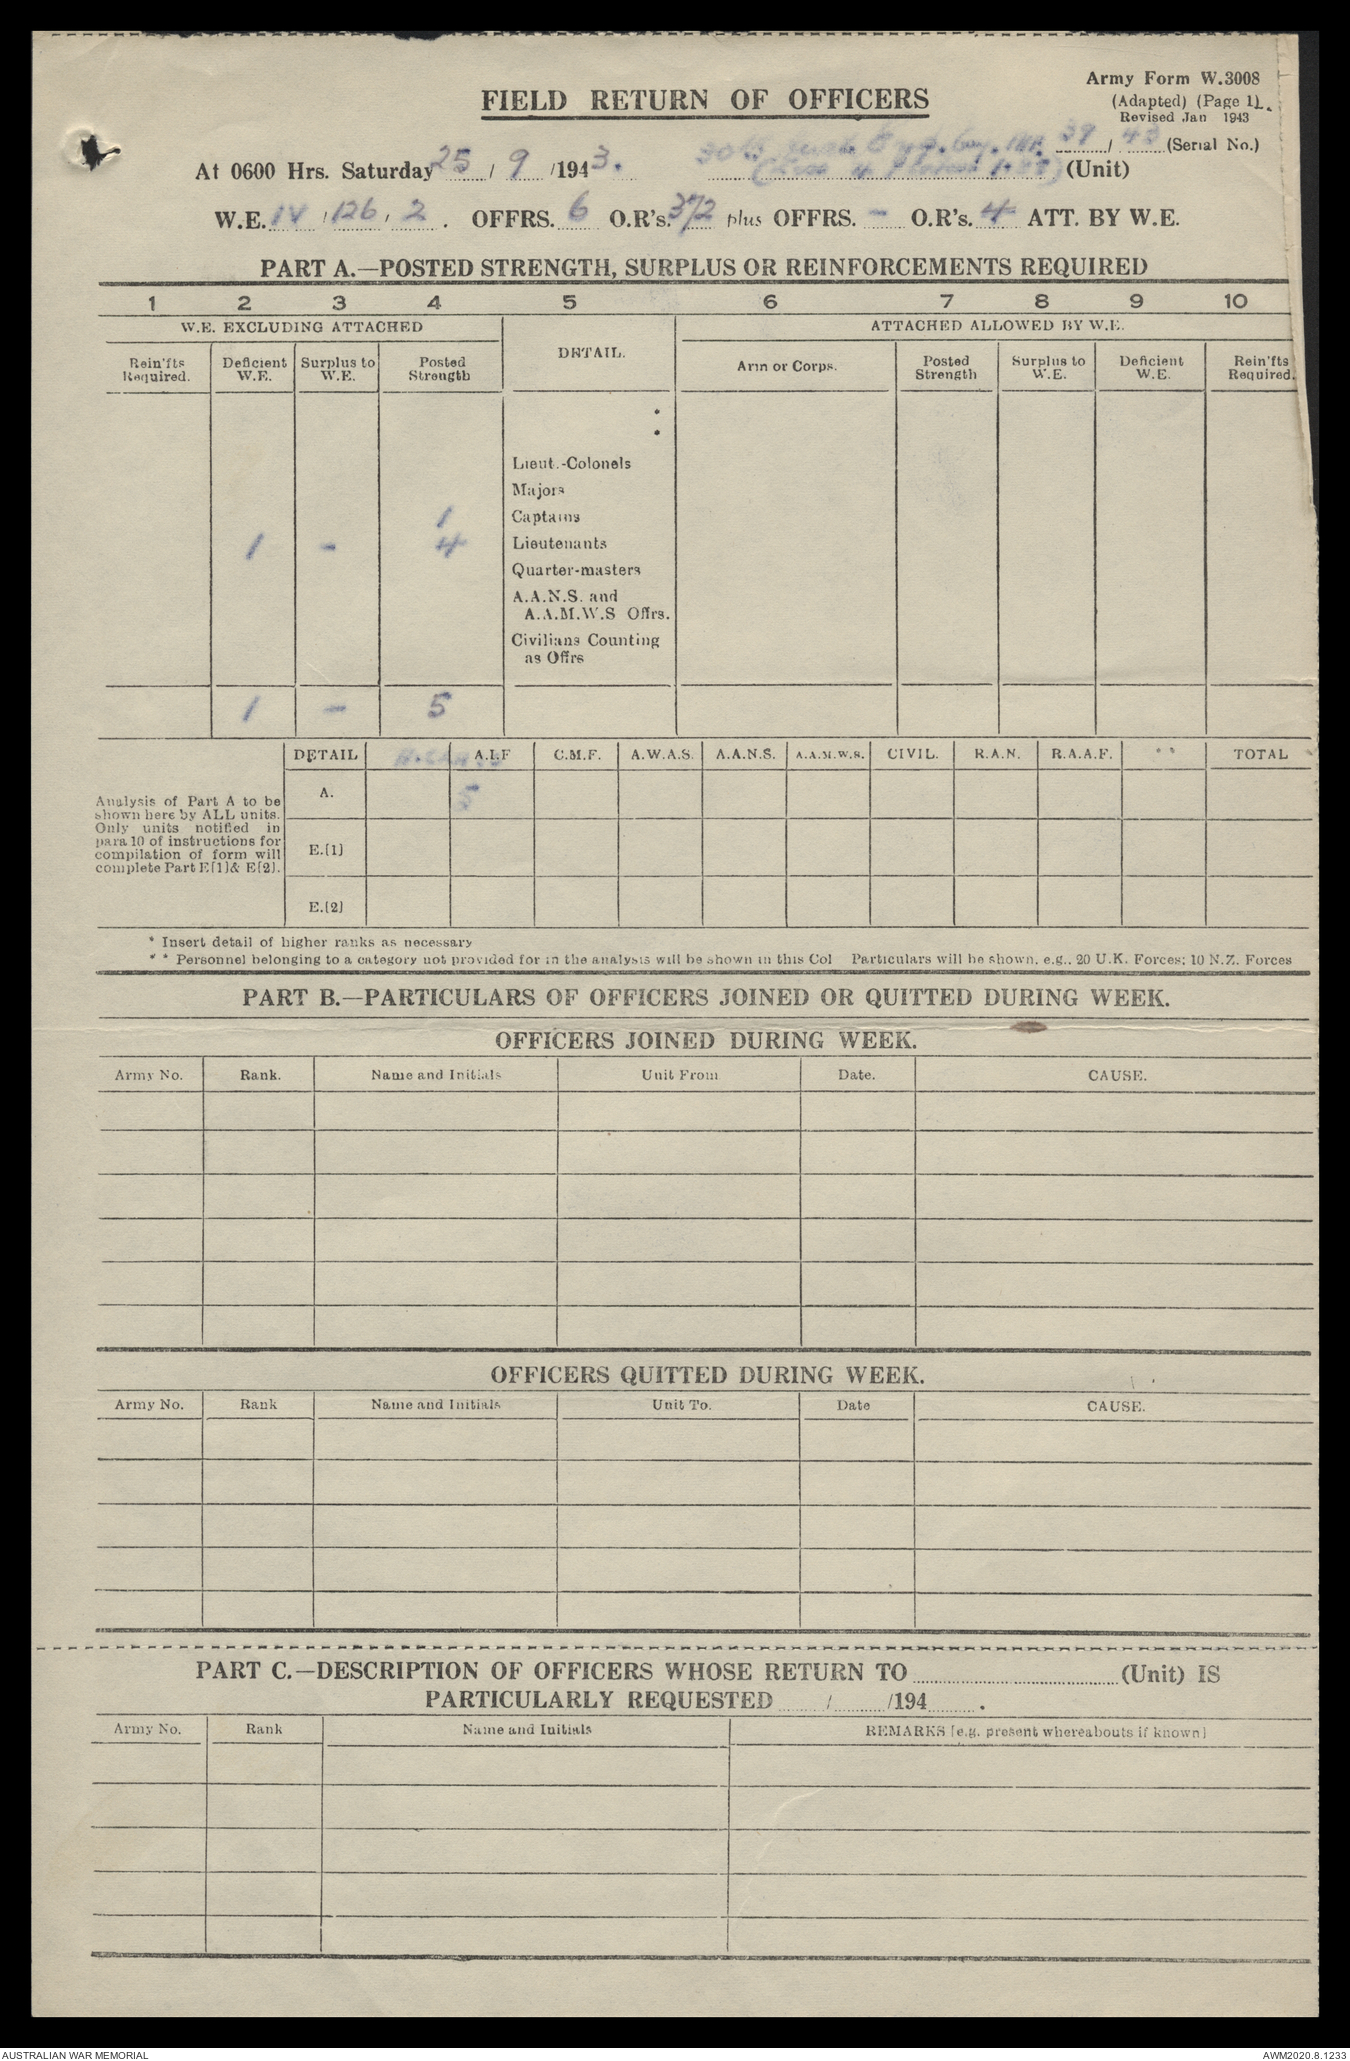 Army Form W.3008
FIELD RETURN OF OFFICERS
(Adapted) (Page 1).
Revised Jan 1943
39/43 (Serial No.)
At 0600 Hrs. Saturday 25/9/1943. (Unit)
W.E. IV/126/2. OFFRS. 6 O.R's. 372 plus OFFRS. - O.R's. 4 ATT. BY W.E.
PART A.—POSTED STRENGTH, SURPLUS OR REINFORCEMENTS REQUIRED
1 2 3 4 5 6 7 8 9 10
W.E. EXCLUDING ATTACHED DETAIL. ATTACHED ALLOWED BY W.E.
Rein'fts Required. Deficient W.E. Surplus to W.E. Posted Strength Arm or Corps. Posted Strength Surplus to W.E. Deficient W.E. Rein'fts Required.
*
*
Lieut.-Colonels
Majors
1 Captains
1 - 4 Lieutenants
Quarter-masters
A.A.N.S. and
A.A.M.W.S Offrs.
Civilians Counting
as Offrs
1 - 5
DETAIL A.I.F C.M.F. A.W.A.S. A.A.N.S. A.A.M.W.S. CIVIL. R.A.N. R.A.A.F. * * TOTAL
A. 5
Analysis of Part A to be
shown here by ALL units.
Only units notified in
para 10 of instructions for
compilation of form will
complete Part E[1]& E[2].
E.[1]
E.[2]
* Insert detail of higher ranks as necessary
* * Personnel belonging to a category not provided for in the analysis will be shown in this Col Particulars will be shown, e.g., 20 U.K. Forces; 10 N.Z. Forces
PART B.—PARTICULARS OF OFFICERS JOINED OR QUITTED DURING WEEK.
OFFICERS JOINED DURING WEEK.
Army No. Rank. Name and Initials Unit From Date. CAUSE.
OFFICERS QUITTED DURING WEEK.
Army No. Rank Name and Initials Unit To. Date CAUSE.
PART C.—DESCRIPTION OF OFFICERS WHOSE RETURN TO (Unit) IS
PARTICULARLY REQUESTED / /194 .
Army No. Rank Name and Initials REMARKS [e.g. present whereabouts if known]
AUSTRALIAN WAR MEMORIAL AWM2020.8.1233